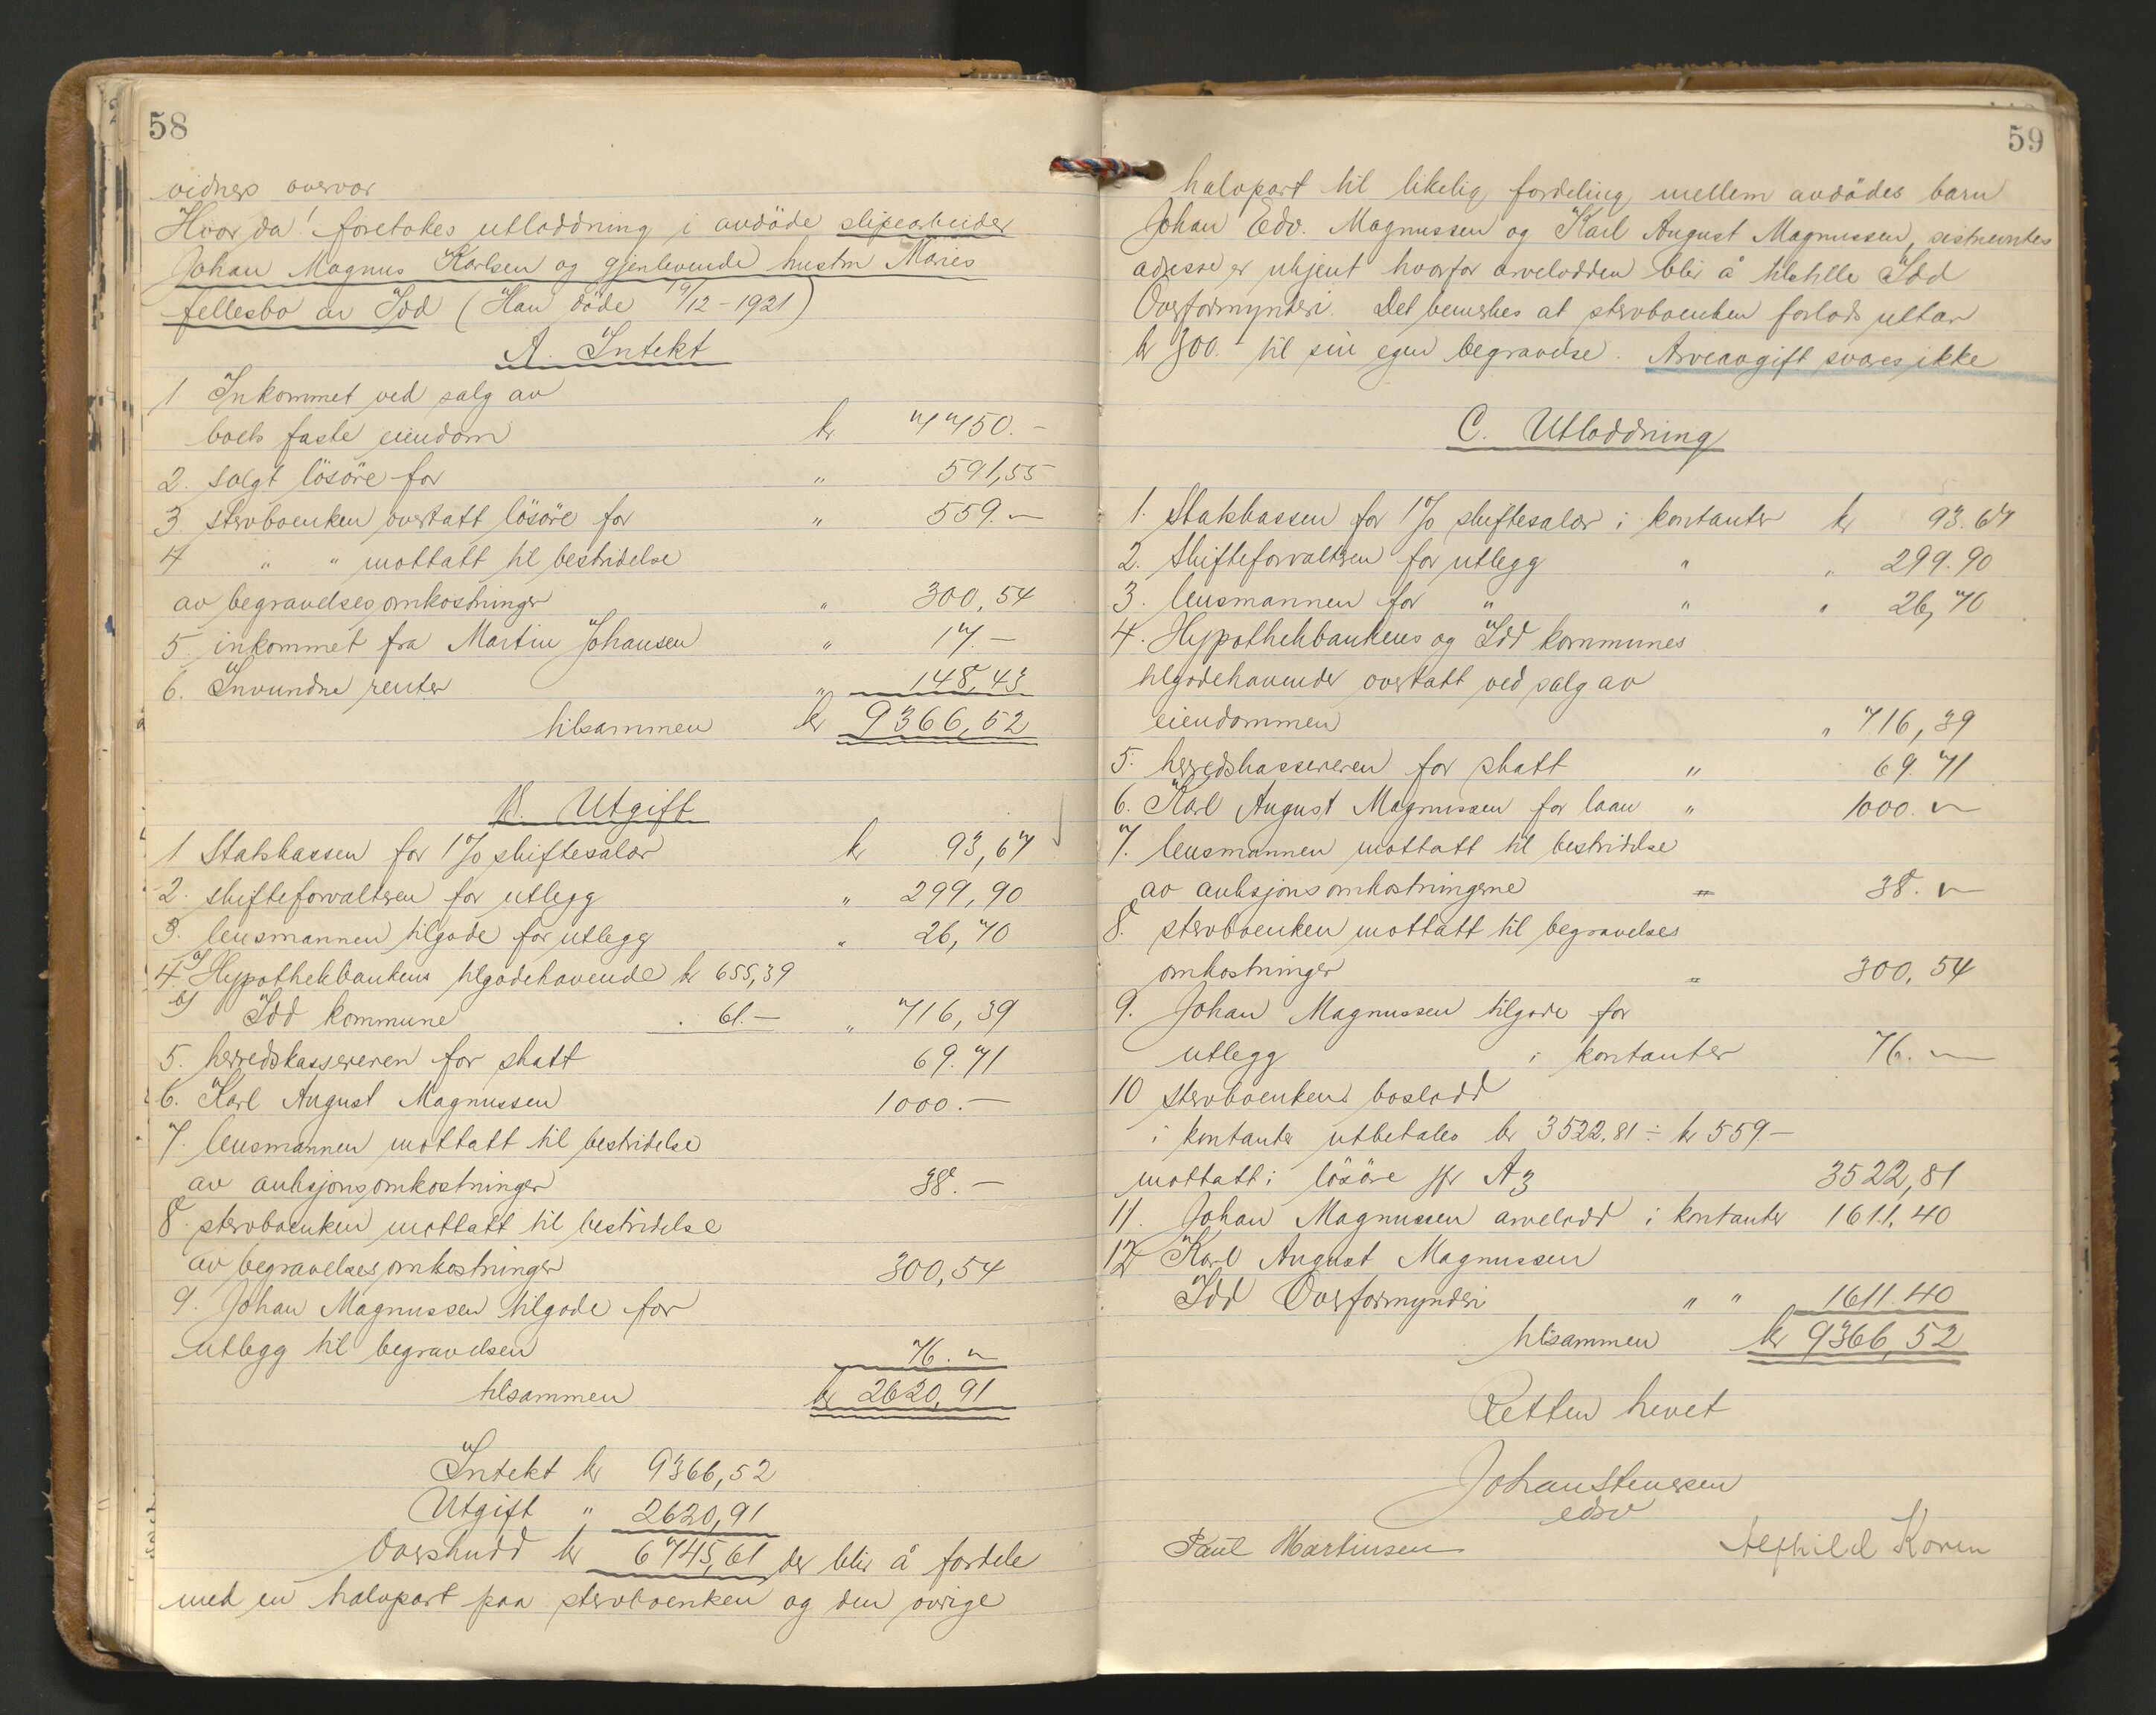 58
vidners overvær
Hvor da! foretokes utloddning i avdöde slipearbeider
Johan Magnus Karlsen og gjenlevende hustru Maries
fellesbo av Idd (Han döde 19/12-1921)
A. Intekt
1 Inkommet ved salg av
boets faste eiendom kr 7750.-
2. solgt lösöre for " 591,55
3 stervboenken overtatt lösöre for " 559.-
4 " " mottatt til bestridelse
av begravelsesomkostninger " 300,54
5 inkommet fra Martin Johansen " 17.-
6. Invundne renter " 148,43
tilsammen kr 9366,52
B. Utgift
1 Statskassen for 1% skiftesalær kr 93,67
2. skifteforvalteren for utlegg " 299,90
3. lensmannen tilgode for utlegg " 26,70
4. a) Hypothekbankens tilgodehavende kr 655,39
b) Idd kommune . 61.- " 716,39
5. herredskassereren for skatt 69.71
6. Karl August Magnussen 1000.-
7. lensmannen mottatt til bestridelse
av auksjonsomkostninger 38.-
8. stervboenken mottatt til bestridelse
av begravelsesomkostninger 300,54
9. Johan Magnussen tilgode for
utlegg til begravelsen 76.-
tilsammen kr 2620,91
Intekt kr 9366,52
Utgift " 2620,91
Overskudd kr 6745,61 der blir å fordele
med en halvpart paa stervboenken og den övrige
59
halvpart til likelig fordeling mellem avdödes barn
Johan Edv. Magnussen og Karl August Magnussen, sistnevntes
adresse er ukjent hvorfor arvelodden blir å tilstille Idd
Overformynderi. Det bemerkes at stervboenken forlods uttar
kr 300.- til sin egen begravelse. Arveavgift svares ikke
C. Utloddning
1. Statskassen for 1% skiftesalær i kontanter kr 93.67
2. Skifteforvalteren for utlegg " " 299.90
3. lensmannen for " " " 26,70
4. Hypothekbankens og Idd kommunes
tilgodehavender overtatt ved salg av
eiendommen " 716,39
5. herredskassereren for skatt " 69.71
6. Karl August Magnussen for laan " 1000.-
7. lensmannen mottatt til bestridelse
av auksjonsomkostningerne " 38.-
8. stervboenken mottatt til begravelses
omkostninger " 300,54
9. Johan Magnussen tilgode for
utlegg i kontanter 76.-
10 stervboenkens boslodd
i kontanter utbetales kr 3522.81 ÷ kr 559-
mottatt i lösöre jfr A3 3522,81
11. Johan Magnussen arvelodd i kontanter 1611,40
12 Karl August Magnussen
Idd Overformynderi " " 1611.40
tilsammen kr 9366,52
Retten hevet
Johan Stenersen
edsv
Paul Martinsen Alfhild Koren